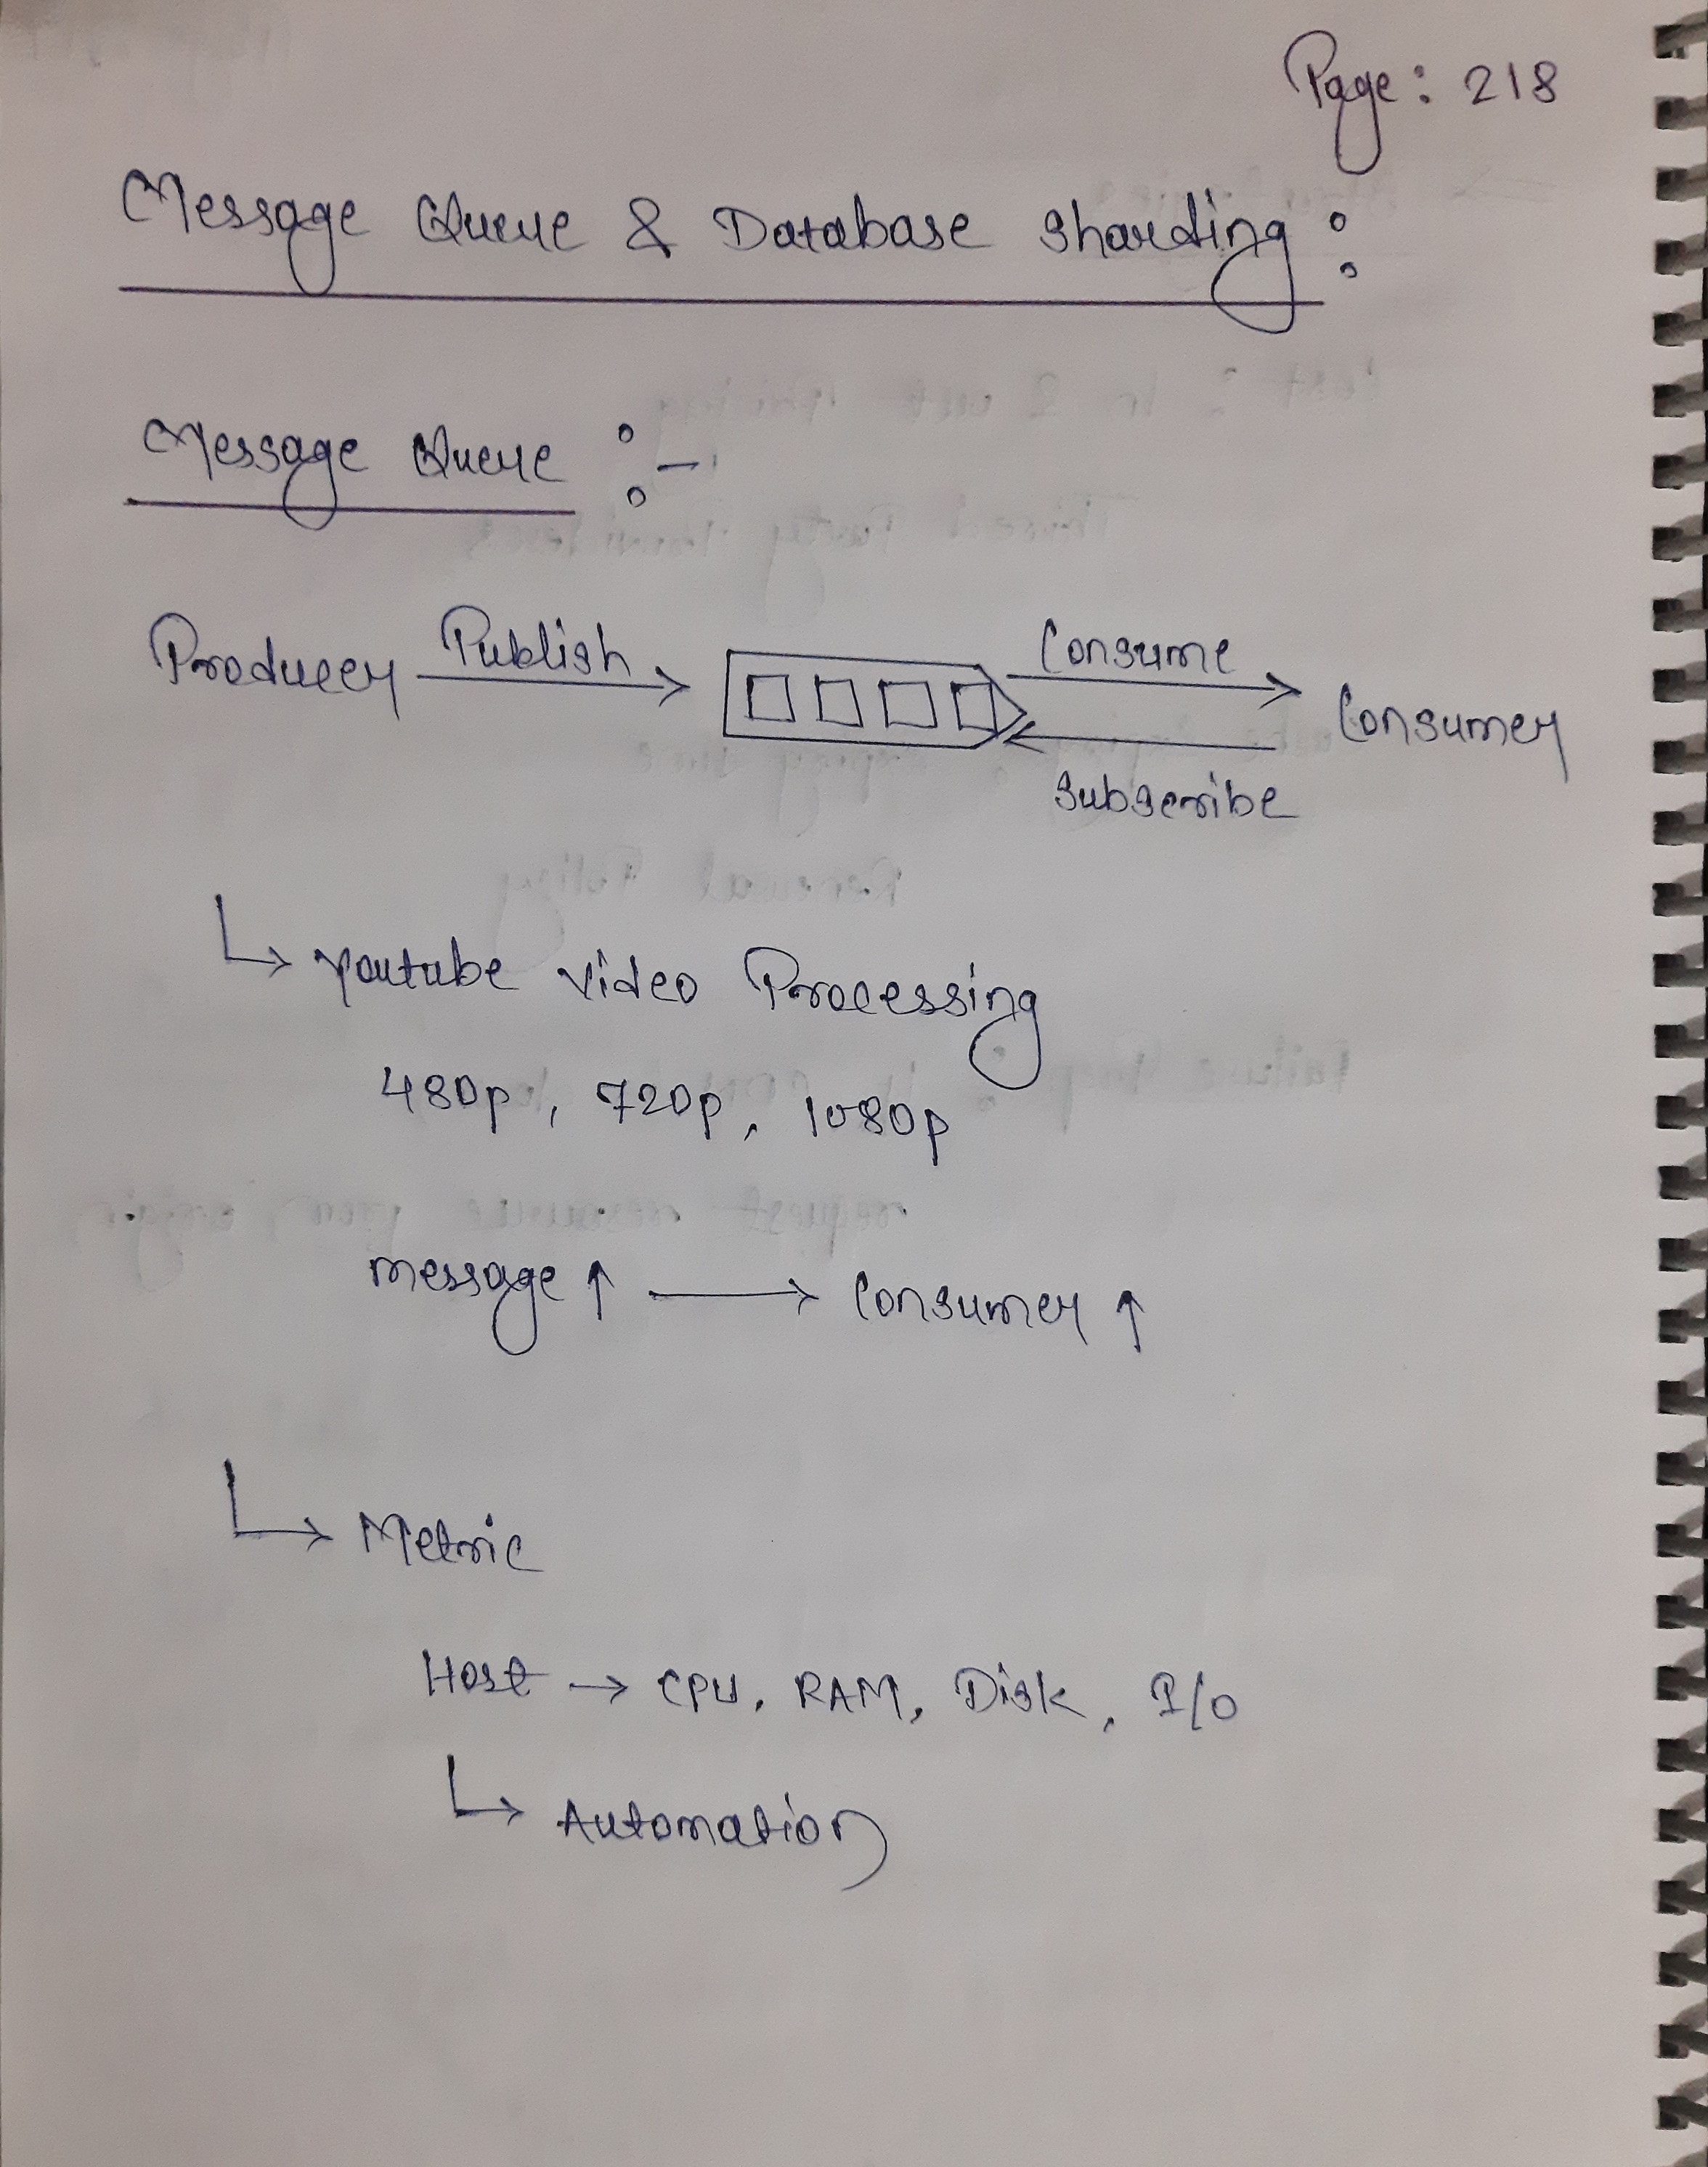 Page: 218
Message Queue & Database Sharding:
Message Queue :-
Producer Publish Consume Consumer
Subscribe
Youtube Video Processing
480p, 720p, 1080p
message ↑ → Consumer ↑
Metric
Host → CPU, RAM, Disk, I/O
Automation